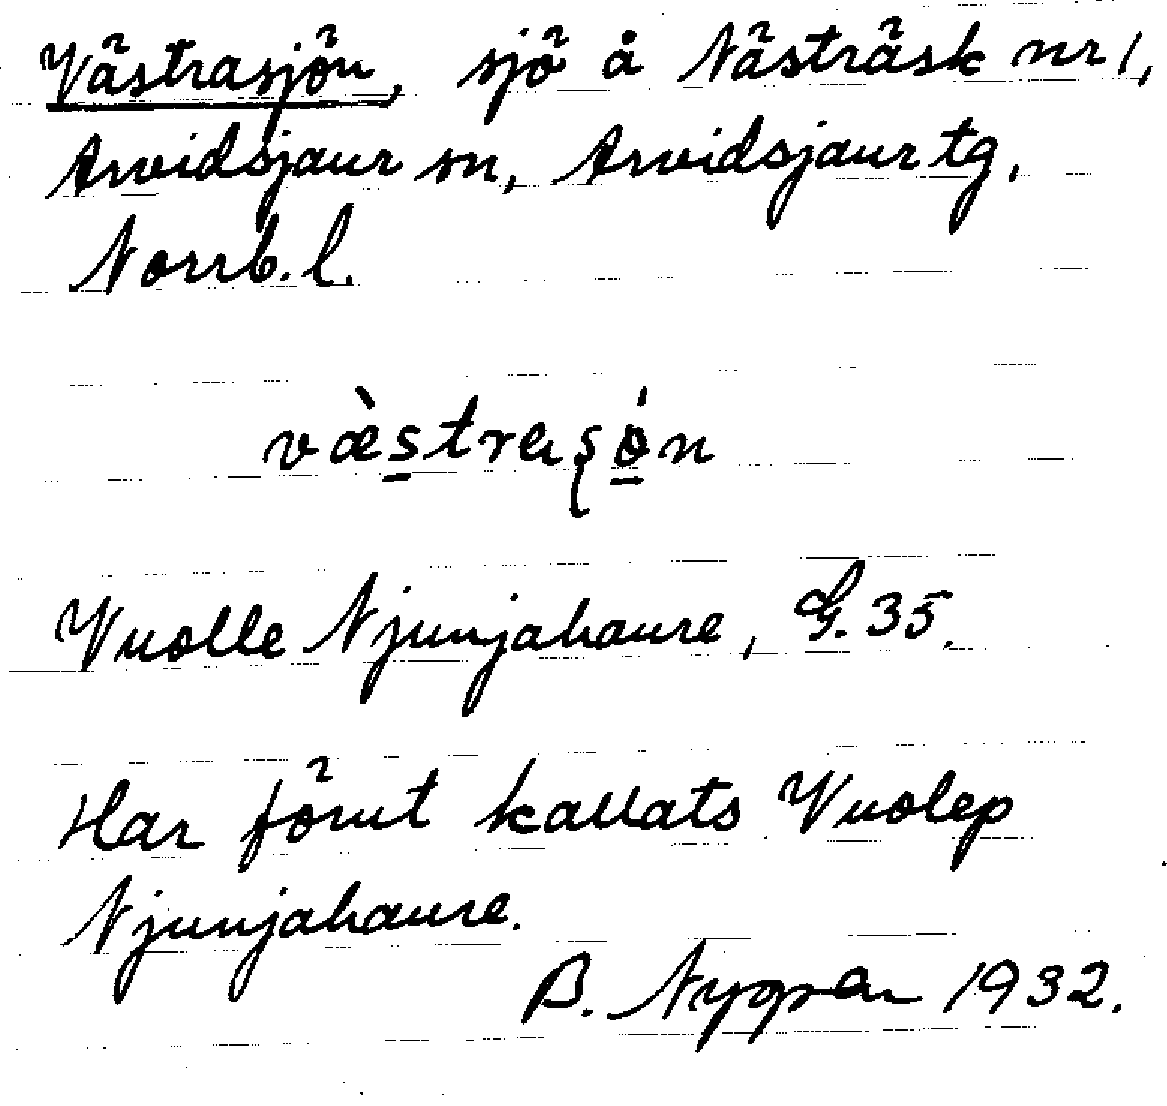 Västrasjön, sjö å Nästräsk nr 1,
Arvidsjaur sn, Arvidsjaur tg,
Norrb. l.
væ̀strasǿn
Vuolle Njunjahaure, G. 35.
Har förut kallats Vuolep
Njunjahaure.
B. Nygren 1932.